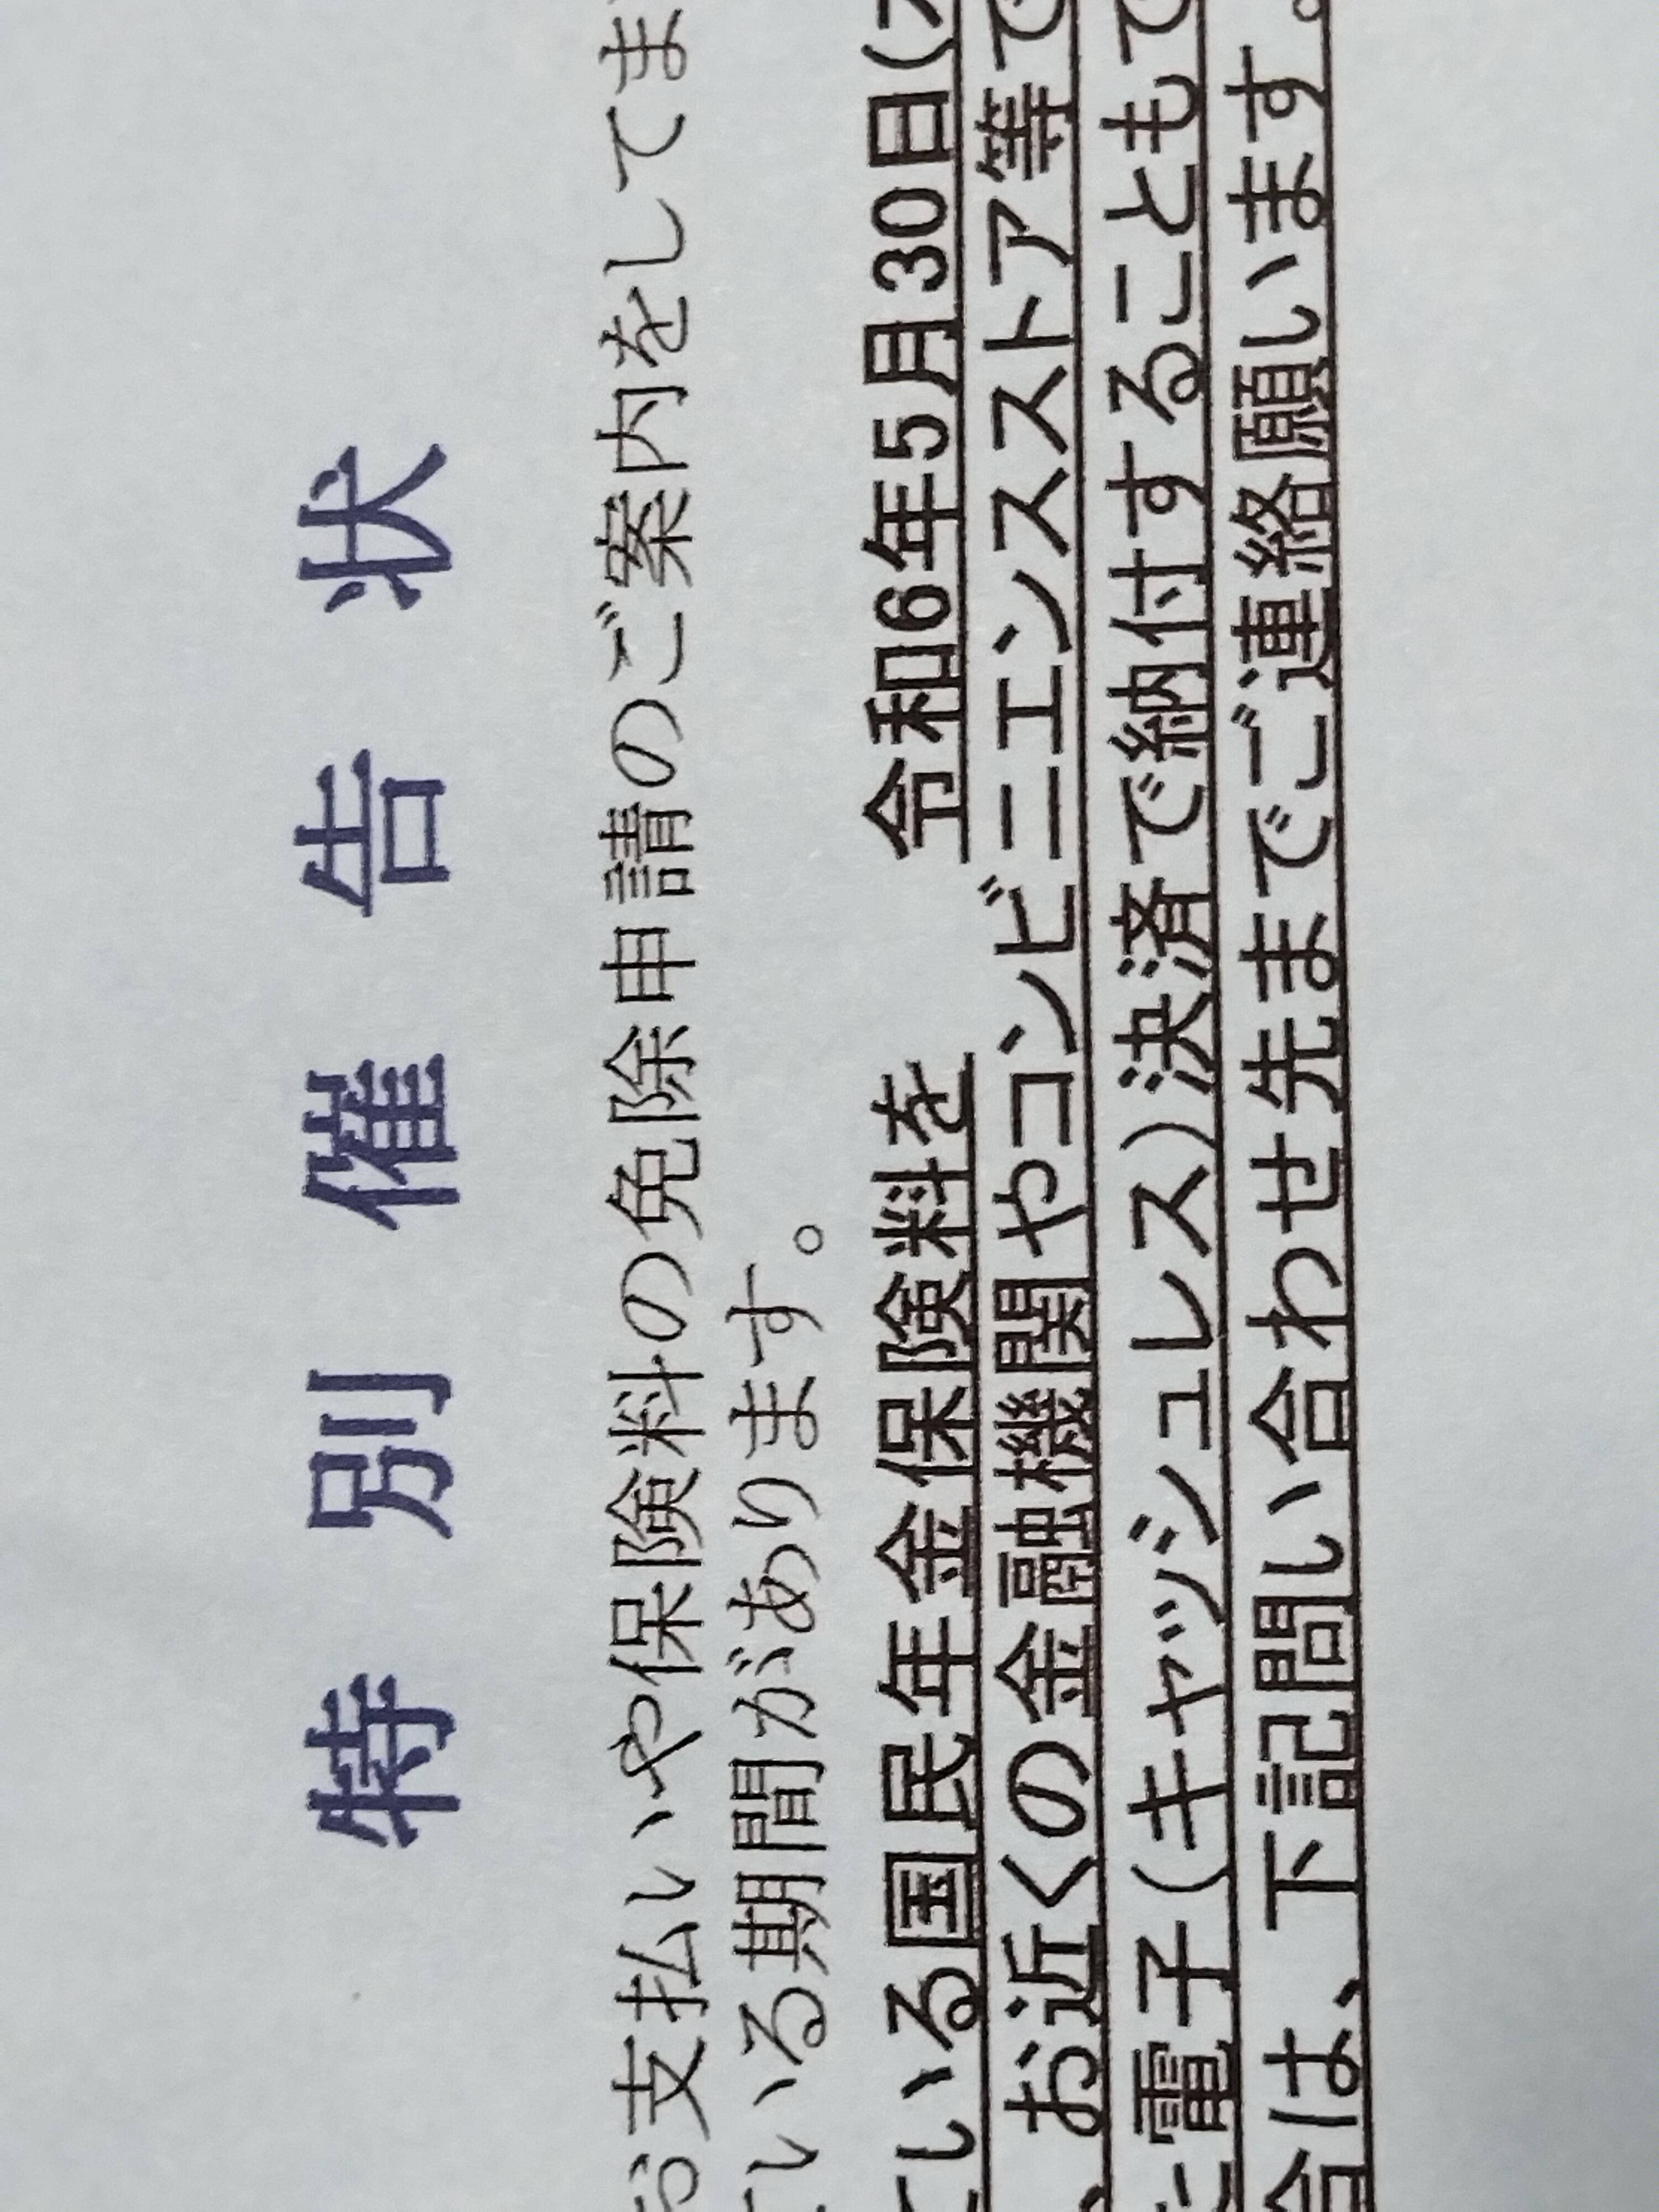 特別催告状
お支払いや保険料の免除申請のご案内をしてま
いる期間があります。
ている国民年金保険料を 令和6年5月30日(
、お近くの金融機関やコンビニエンスストア等で
電子(キャッシュレス)決済で納付することもで
合は、下記問い合わせ先までご連絡願います。